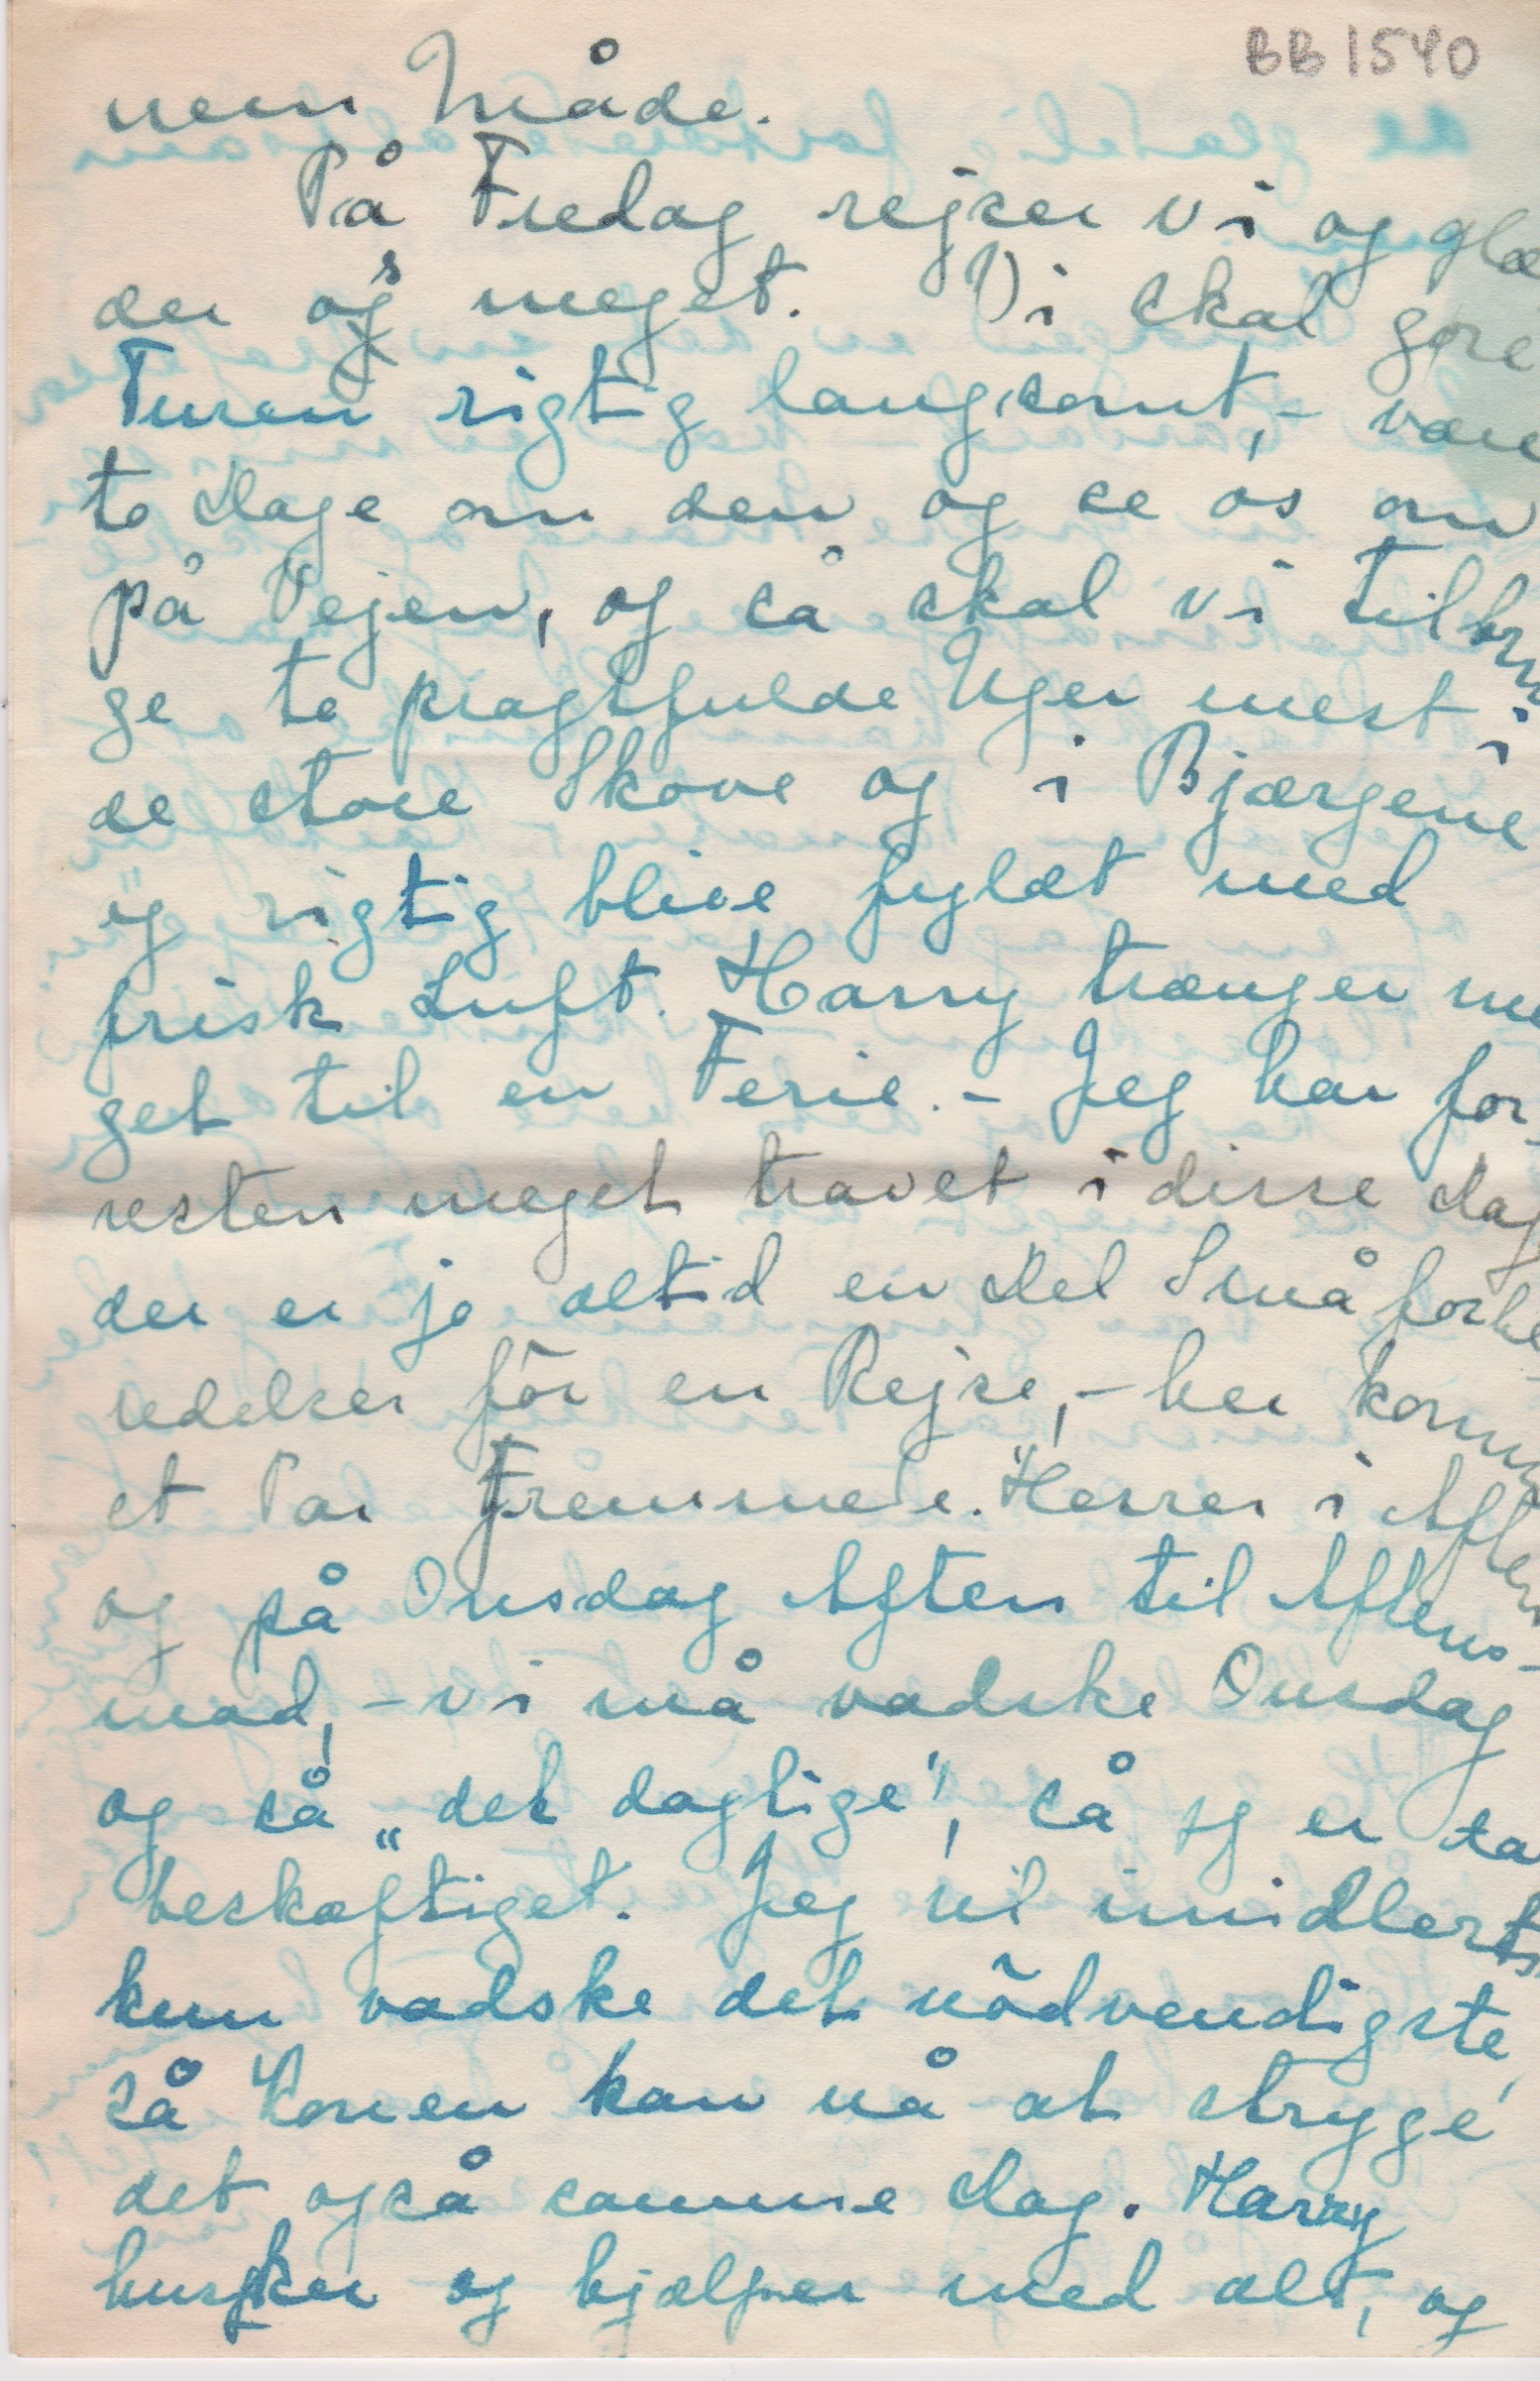 BB 1540
nem Måde.
På Fredag rejser vi og glæ
der os meget. Vi skal gøre
Turen rigtig langsomt, - være
to Dage om den og se os om
på Vejen, og så skal vi tilbrin
ge to pragtfulde Uger mest i
de store Skove og i Bjærgene
og rigtig blive fyldt med
frisk Luft. Harry trænger me
get til en Ferie. - Jeg har for-
resten meget travet i disse Dage
der er jo altid en Del Småforbe-
redelser för en Rejse, - her komm
et Par Fremmede "Herrer i Aften
og på Onsdag Aften til Aftens-
mad, - vi må vadske Onsdag
og så "det daglige", så jeg er
beskæftiget. Jeg vil imidlerti
kun vadske det nödvendigste,
så Konen kan nå at stryge
det også samme Dag. Harry
husker og hjælper med alt, og